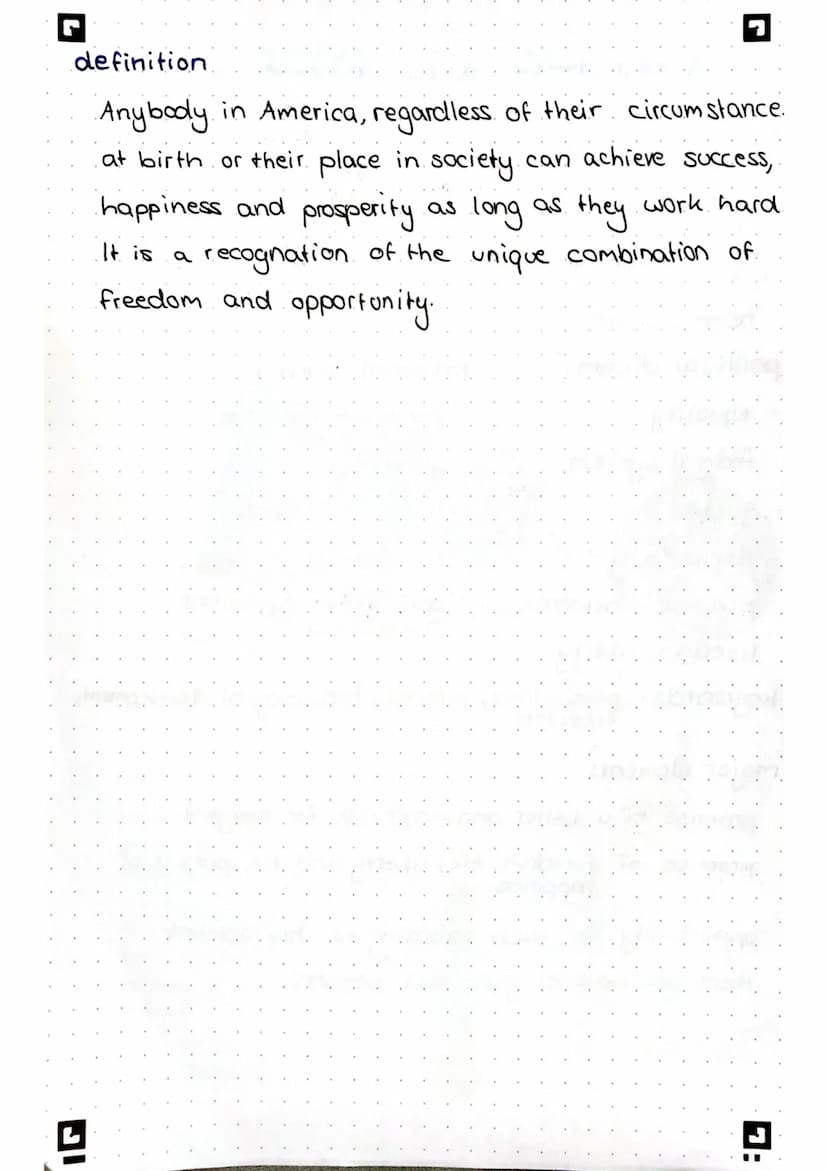 definition
Anybody in America, regardless of their circumstance
at birth or their place in society can achieve success,
happiness and prosperity as long as they work hard
It is a recognation of the unique combination of
freedom and opportunity.